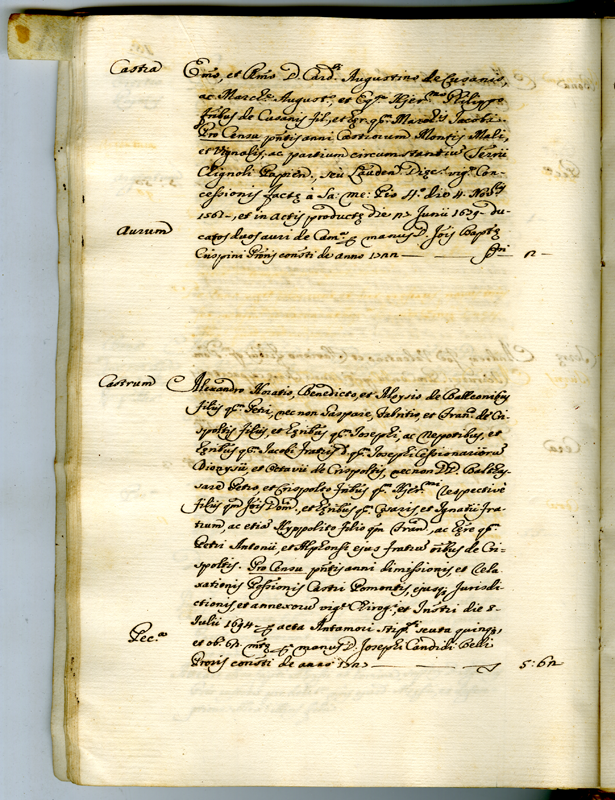 Castra
Em̃o, et Rm̃o D. Card. Augustino de Cusanis,
ac March. August., et Eq. Hjer. Philipp.
fribus de Cusanis fil, et Hgr. qm̃ March. Jacobi.
Pro Censu pñtis anni Castrorum Montis Mali,
et Vignalis, ac partium circumstantiũ
Clignoli Papien., seu Lauden. Dioc. vig. Con-
cessionis factę à Sa: me: Pio 4. die 4. 
1561-, et in Actis productę die Junii 1639- du-
Aurum
catos duos auri de Cam. p manus D. Jõis Baptę
Crispini Prõris constĩ de anno
Castrum
Alexandro Horatio, Benedicto, et Aloysio de Balleonibus
filiis qm̃ Petri, nec non Gaspare, Fabritio, et Fran. de Cri-
spoltis filiis et Hg̃ribus qm̃ Josephi, ac Nepotibus, et
Hg̃ribus qm̃ Jacobi Fratris qm̃ Josephi Cessionariorũ
Dionysii, et Octavii de Crispoltis, nec non DD. Baltas-
sare Petro, et Crispolto fribus qm̃ Hjer. respectivè
filiis qm̃ Jõis Dom., et Hg̃ribus qm̃ Cęsaris, et Ignatii fra-
trum, ac etiã Hyppolito filio qm̃ Fran., ac Hg̃re qm̃
Petri Antonii, et Alphonsi ejus fratris õibus de Cri-
spoltis. Pro Censu pñtis anni dimissionis, et rela-
xationis Possionis Castri Pomontis, ejusq, Jurisdi-
ctionis, et annexorũ vig. Chirog. et Instri die 8-
Julii 1694- p acta Antamori scuta quinq,
Pec.
et ob. 62 mtę p manus D. Josephi Candidi Belli
Prõris constĩ de anno 5: 62